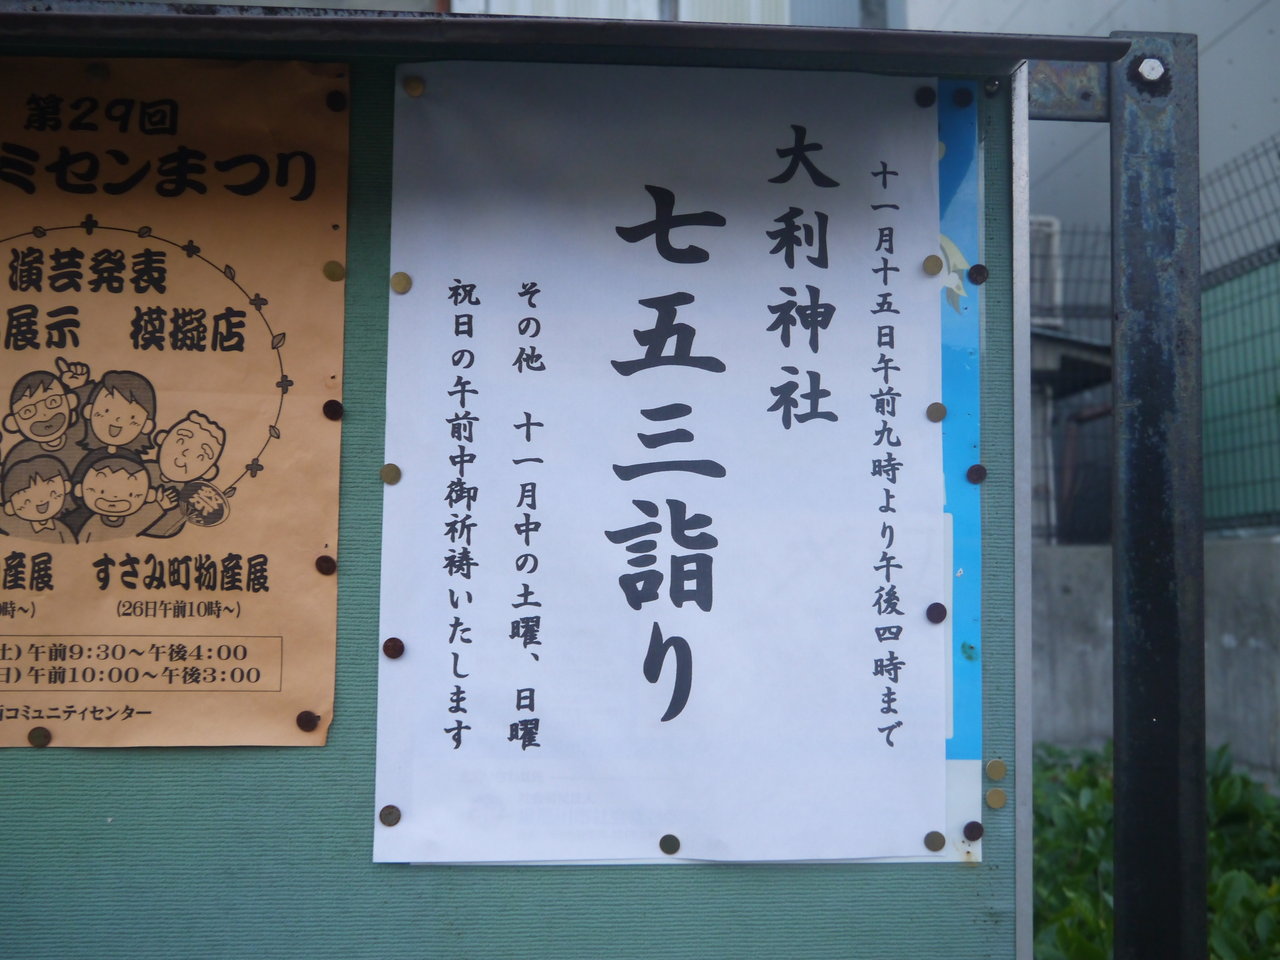 十一月十五日午前九時より午後四時まで
大利神社
七五三詣り
その他　十一月中の土曜、日曜
祝日の午前中御祈祷いたします
第29回
ミセンまつり
演芸発表
展示　模擬店
産展　すさみ町物産展
時〜)　(26日午前10時〜)
土)午前9:30〜午後4:00
日)午前10:00〜午後3:00
コミュニティセンター